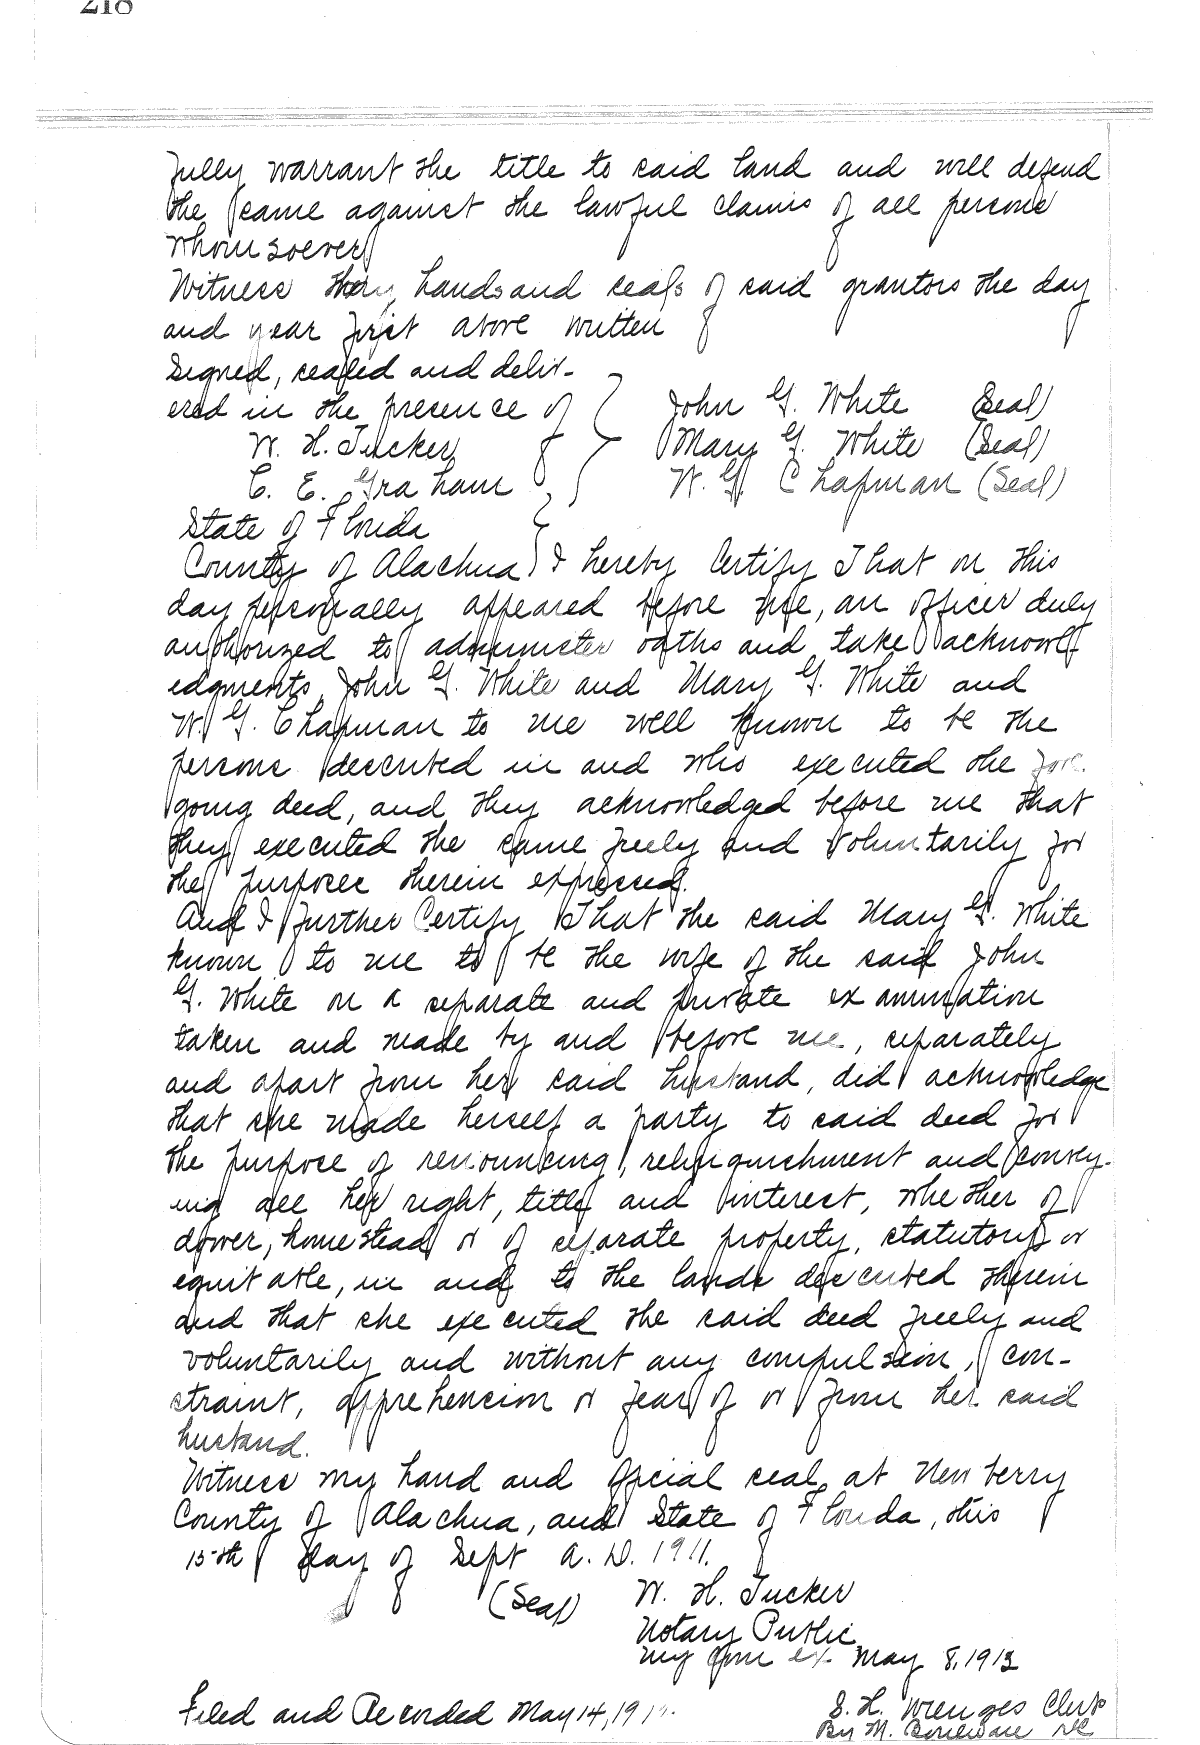 218
fully warrant the title to said land and will defend
the same against the lawful claims of all persons
whomsoever
Witness they hands and seals of said grantors the day
and year first above written
Signed, sealed and deliv-
ered in the presence of
John G. White (Seal)
W. H. Tucker
Mary G. White (Seal)
C. E. Graham
W. G. Chapman (Seal)
State of Florida
County of Alachua } I hereby Certify That on this
day personally appeared before me, an officer duly
authorized to administer oaths and take acknowl
edgments John G. White and Mary G. White and
W. G. Chapman to me well known to be the
persons described in and who executed the fore
going deed, and they acknowledged before me that
they executed the same freely and voluntarily for
the purposes therein expressed.
And I further Certify That the said Mary G. White
known to me to be the wife of the said John
G. White on a separate and private examination
taken and made by and before me, separately
and apart from her said husband, did acknowledge
that she made herself a party to said deed for
the purpose of renouncing, relinquishment and convey-
ing all her right, title and interest, whether of
dower, homestead or of separate property, statutory or
equitable, in and to the lands described therein
and that she executed the said deed freely and
voluntarily and without any compulsion, con-
straint, apprehension or fear of or from her said
husband.
Witness my hand and official seal at Newberry
County of Alachua, and State of Florida, this
15th day of Sept A. D. 1911.
(Seal) W. H. Tucker
Notary Public
my com ex. May 8, 1913
Filed and Recorded May 14, 191
S. H. Wienges Clerk
By M. DC